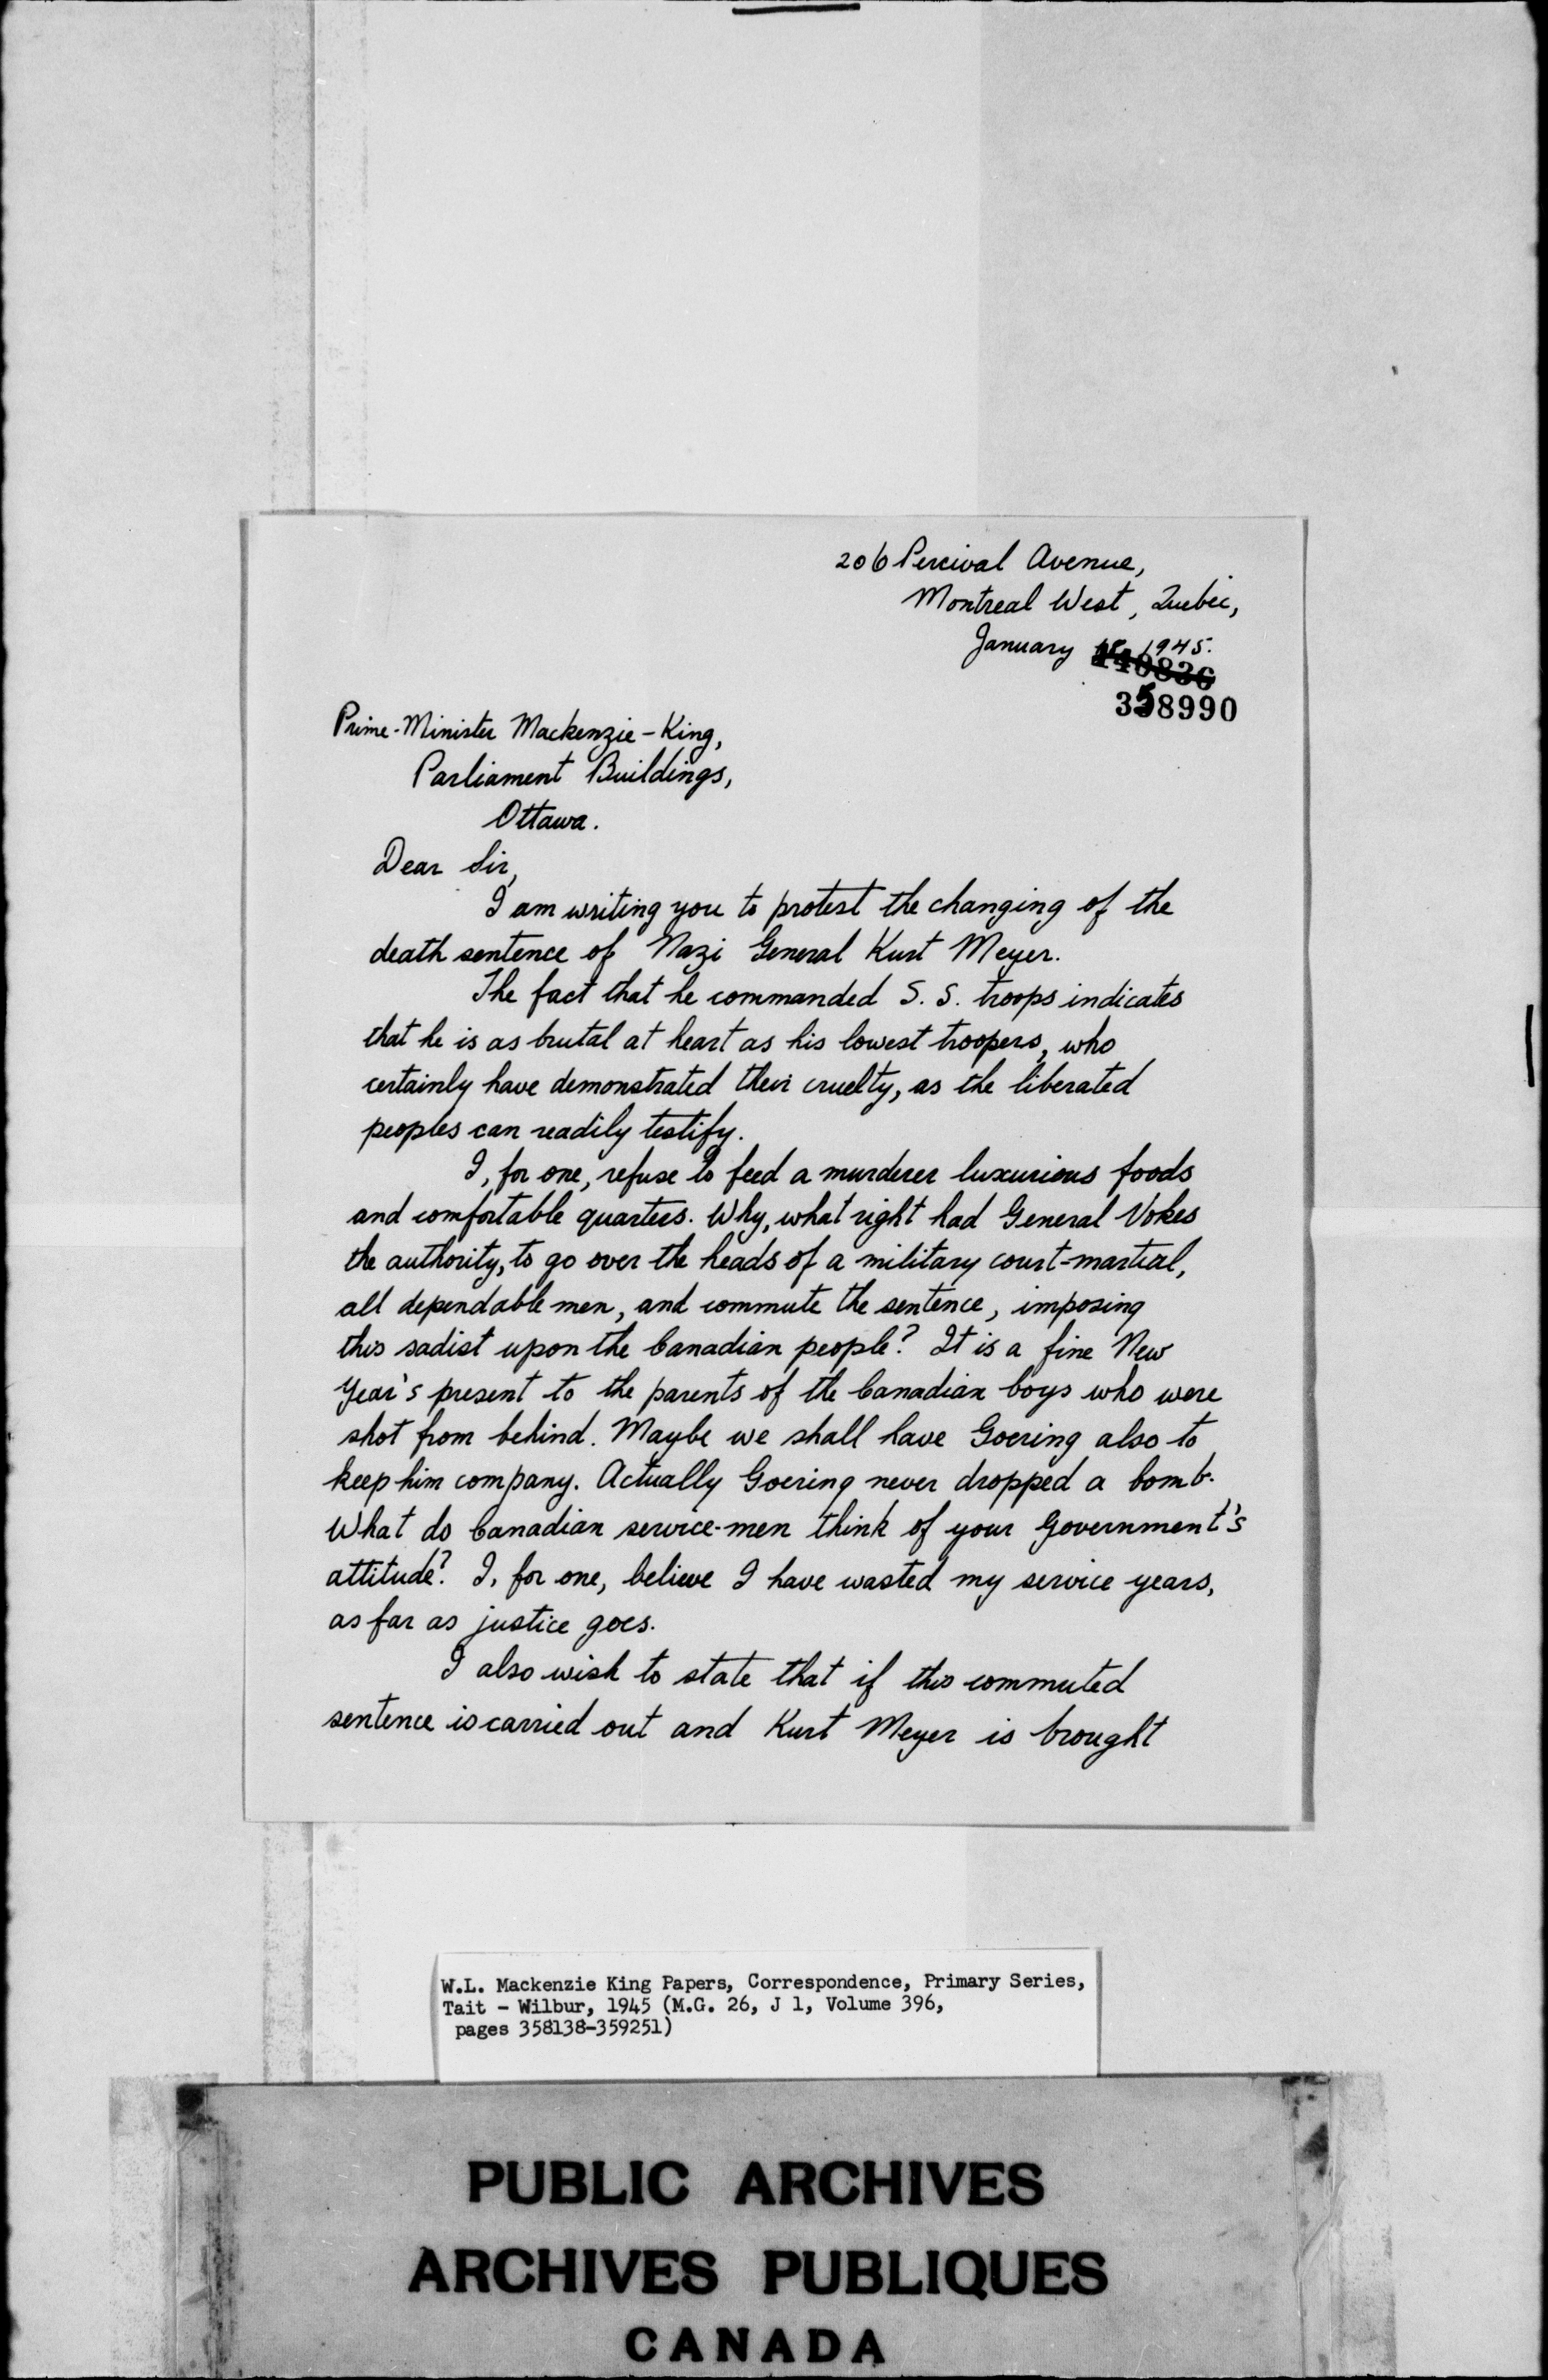 206 Percival Avenue,
Montreal West, Quebec,
January 1945.
140836
358990
Prime-Minister Mackenzie-King,
Parliament Buildings,
Ottawa.
Dear Sir,
I am writing you to protest the changing of the
death sentence of Nazi General Kurt Meyer.
The fact that he commanded S. S. troops indicates
that he is as brutal at heart as his lowest troopers, who
certainly have demonstrated their cruelty, as the liberated
peoples can readily testify.
I, for one, refuse to feed a murderer luxurious foods
and comfortable quarters. Why, what right had General Vokes
the authority, to go over the heads of a military court-martial,
all dependable men, and commute the sentence, imposing
this sadist upon the Canadian people? It is a fine New
Year's present to the parents of the Canadian boys who were
shot from behind. Maybe we shall have Goering also to
keep him company. Actually Goering never dropped a bomb.
What do Canadian service-men think of your Government's
attitude? I, for one, believe I have wasted my service years,
as far as justice goes.
I also wish to state that if this commuted
sentence is carried out and Kurt Meyer is brought
W.L. Mackenzie King Papers, Correspondence, Primary Series,
Tait - Wilbur, 1945 (M.G. 26, J 1, Volume 396,
pages 358138-359251)
PUBLIC ARCHIVES
ARCHIVES PUBLIQUES
CANADA